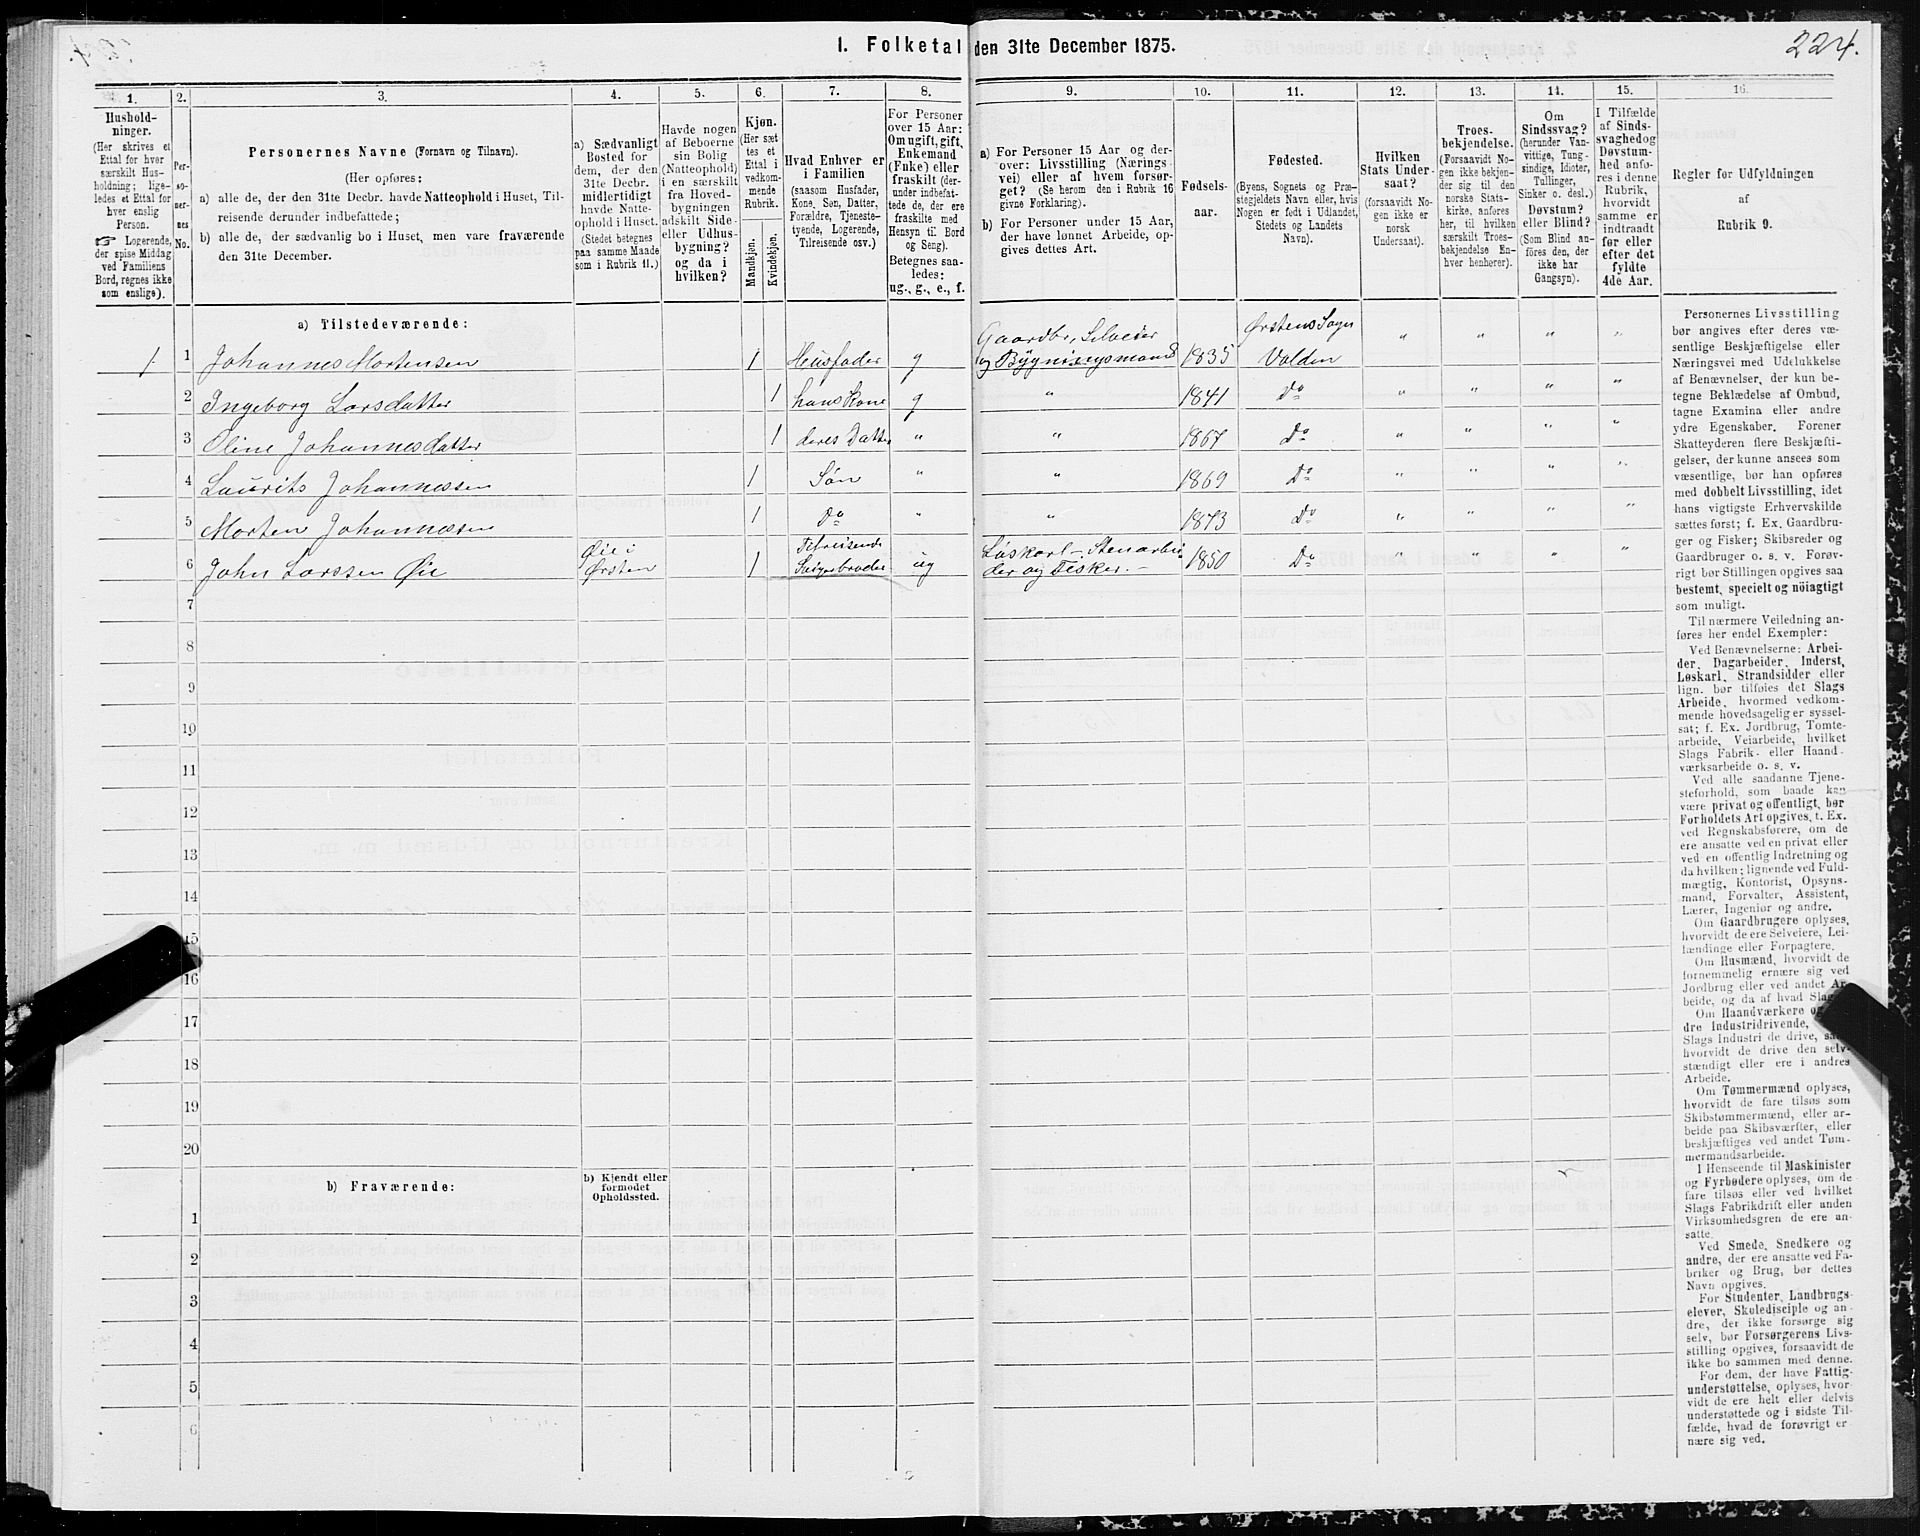 1. Folketal den 31te December 1875.
224.
1.
Hushold-
ninger.
(Her skrives et
Ettal for hver
særskilt Hus-
holdning; lige-
ledes et Ettal for
hver enslig
Person.
☞ Logerende,
der spise Middag
ved Familiens
Bord, regnes ikke
som enslige).
2.
Per-
so-
ner-
nes
No.
3.
Personernes Navne (Fornavn og Tilnavn).
(Her opføres:
a) alle de, der den 31te Decbr. havde Natteophold i Huset, Til-
reisende derunder indbefattede;
b) alle de, der sædvanlig bo i Huset, men vare fraværende
den 31te December.
4.
a) Sædvanligt
Bosted for
dem, der den
31te Decbr.
midlertidigt
havde Natte-
ophold i Huset.
(Stedet betegnes
paa samme Maade
som i Rubrik 11.)
5.
Havde nogen
af Beboerne
sin Bolig
(Natteophold)
i en særskilt
fra Hoved-
bygningen
adskilt Side-
eller Udhus-
bygning?
og da i
hvilken?
6.
Kjøn.
(Her sæt-
tes et
Ettal i
vedkom-
mende
Rubrik.
Mandkjøn.
Kvindekjøn.
7.
Hvad Enhver er
i Familien
(saasom Husfader,
Kone, Søn, Datter,
Forældre, Tjeneste-
tyende, Logerende,
Tilreisende osv.)
8.
For Personer
over 15 Aar:
Om ugift, gift,
Enkemand
(Enke) eller
fraskilt (der-
under indbefat-
tede de, der ere
fraskilte med
Hensyn til Bord
og Seng).
Betegnes saa-
ledes:
ug., g., e., f.
9.
a) For Personer 15 Aar og der-
over: Livsstilling (Nærings-
vei) eller af hvem forsør-
get? (Se herom den i Rubrik 16
givne Forklaring).
b) For Personer under 15 Aar,
der have lønnet Arbeide, op-
gives dettes Art.
10.
Fødsels-
aar.
11.
Fødested.
(Byens, Sognets og Præ-
stegjeldets Navn eller, hvis
Nogen er født i Udlandet,
Stedets og Landets
Navn).
12.
Hvilken
Stats Under-
saat?
(forsaavidt No-
gen ikke er
norsk
Undersaat).
13.
Troes-
bekjendelse.
(Forsaavidt No-
gen ikke bekjen-
der sig til den
norske Stats-
kirke, anføres
her, til hvilken
særskilt Troes-
bekjendelse En-
hver henhører).
14.
Om
Sindssvag?
(herunder Van-
vittige, Tung-
sindige, Idioter,
Tullinger,
Sinker o. desl.)
Døvstum?
eller Blind?
(Som Blind an-
føres den, der
ikke har
Gangsyn).
15.
I Tilfælde
af Sinds-
svaghed og
Døvstum-
hed anfø-
res i denne
Rubrik,
hvorvidt
samme er
indtraadt
før eller
efter det
fyldte
4de Aar.
16.
Regler for Udfyldningen
af
Rubrik 9.
a) Tilstedeværende:
1 1 Johannes Mortensen 1 Husfader g Gaardbr, Selveier
og Bygningsmand 1835 Ørstens Sogn
Volden " " " "
2 Ingeborg Larsdatter 1 hans Kone g " 1841 Do " " " "
3 Oline Johannesdatter 1 deres Datter " " 1867 Do " " " "
4 Laurits Johannessen 1 Søn " " 1869 Do " " " "
5 Morten Johannessen 1 Do " " 1873 Do " " " "
6 John Larssen Øie Øie i
Ørsten 1 Tilreisende
Svigerbroder ug Løskarl – Stenarbei
der og Fisker. – 1850 Do " " " "
7
8
9
10
11
12
13
14
15
16
17
18
19
20
b) Fraværende:
b) Kjendt eller
formodet
Opholdssted.
1
2
3
4
5
6
Personernes Livsstilling
bør angives efter deres væ-
sentlige Beskjæftigelse eller
Næringsvei med Udelukkelse
af Benævnelser, der kun be-
tegne Beklædelse af Ombud,
tagne Examina eller andre
ydre Egenskaber. Forener
Skatteyderen flere Beskjæfti-
gelser, der kunne ansees som
væsentlige, bør han opføres
med dobbelt Livsstilling, idet
hans vigtigste Erhvervskilde
sættes først; f. Ex. Gaardbru-
ger og Fisker; Skibsreder og
Gaardbruger o. s. v. Forøv-
rigt bør Stillingen opgives saa
bestemt, specielt og nöiagtigt
som muligt.
Til nærmere Veiledning an-
føres her endel Exempler:
Ved Benævnelserne: Arbei-
der, Dagarbeider, Inderst,
Løskarl, Strandsidder eller
lign. bør tilføies det Slags
Arbeide, hvormed vedkom-
mende hovedsagelig er syssel-
sat; f. Ex. Jordbrug, Tomte-
arbeide, Veiarbeide, hvilket
Slags Fabrik- eller Haand-
værksarbeide o. s. v.
Ved alle saadanne Tjene-
steforhold, som baade kan
være privat og offentligt, bør
Forholdets Art opgives. t. Ex.
ved Regnskabsførere, om de
ere ansatte ved en privat eller
ved en offentlig Indretning og
da hvilken; lignende ved Fuld-
mægtig, Kontorist, Opsyns-
mand, Forvalter, Assistent,
Lærer, Ingeniør og andre.
Om Gaardbrugere oplyses,
hvorvidt de ere Selveiere, Lei-
lændinge eller Forpagtere.
Om Husmænd, hvorvidt de
fornemmelig ernære sig ved
Jordbrug eller ved andet Ar-
beide, og da af hvad Slags.
Om Haandværkere og
dre Industridrivende,
Slags Industri de drive, sa
hvorvidt de drive den selv-
stændigt eller ere i andres
Arbeide.
Om Tømmermænd oplyses,
hvorvidt de fare tilsøs som
Skibstømmermænd, eller ar-
beide paa Skibsværfter, eller
beskjæftiges ved andet Tøm-
mermandsarbeide.
I Henseende til Maskinister
og Fyrbødere oplyses, om de
fare tilsøs eller ved hvilket
Slags Fabrikdrift eller anden
Virksomhedsgren de ere an-
satte.
Ved Smede, Snedkere og
andre, der ere ansatte ved Fa-
briker og Brug, bør dettes
Navn opgives.
For Studenter, Landbrugs-
elever, Skoledisciple og an-
dre, der ikke forsørge sig
selv, bør Forsørgerens Livs-
stilling opgives, forsaavidt de
ikke bo sammen med denne.
For dem, der have Fattig-
understøttelse, oplyses, hvor-
vidt de ere helt eller delvis
understøttede og i sidste Til-
fælde, hvad de forøvrigt er
nære sig ved.